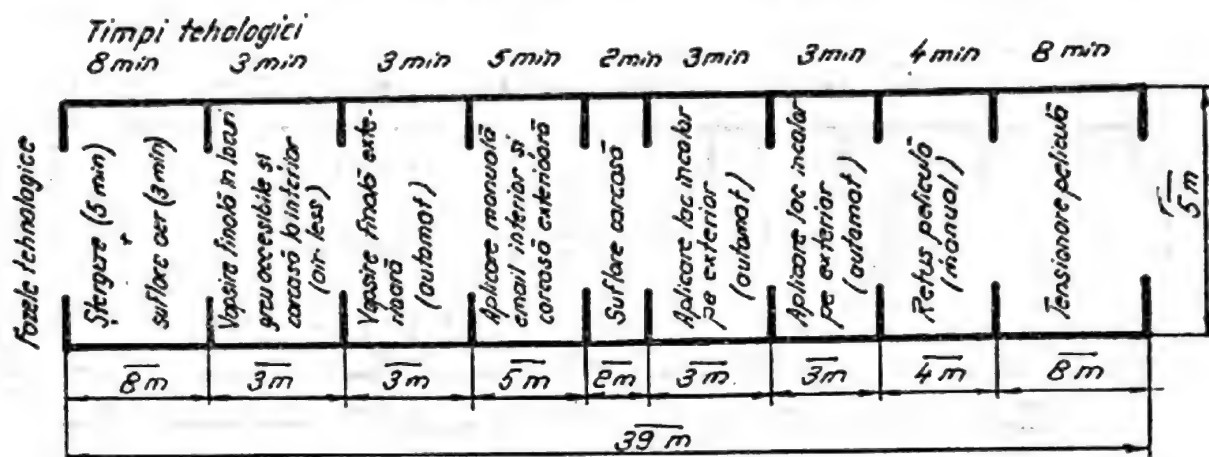 Timpi tehologici
8 min 3 min 3 min 5 min 2 min 3 min 3 min 4 min 8 min
Fazele tehnologice
Ștergere (5 min)
+
suflare aer (3 min)
Vopsire finală în locuri
greu accesibile și
carcasă la interior
(air-less)
Vopsire finală exte-
rioară
(automat)
Aplicare manuală
email interior și
carcasă exterioară
Suflare carcasă
Aplicare lac incolor
pe exterior
(automat)
Aplicare lac incolor
pe exterior
(automat)
Retuș peliculă
(manual)
Tensionare peliculă
5 m
8 m 3 m 3 m 5 m 2 m 3 m 3 m 4 m 8 m
39 m